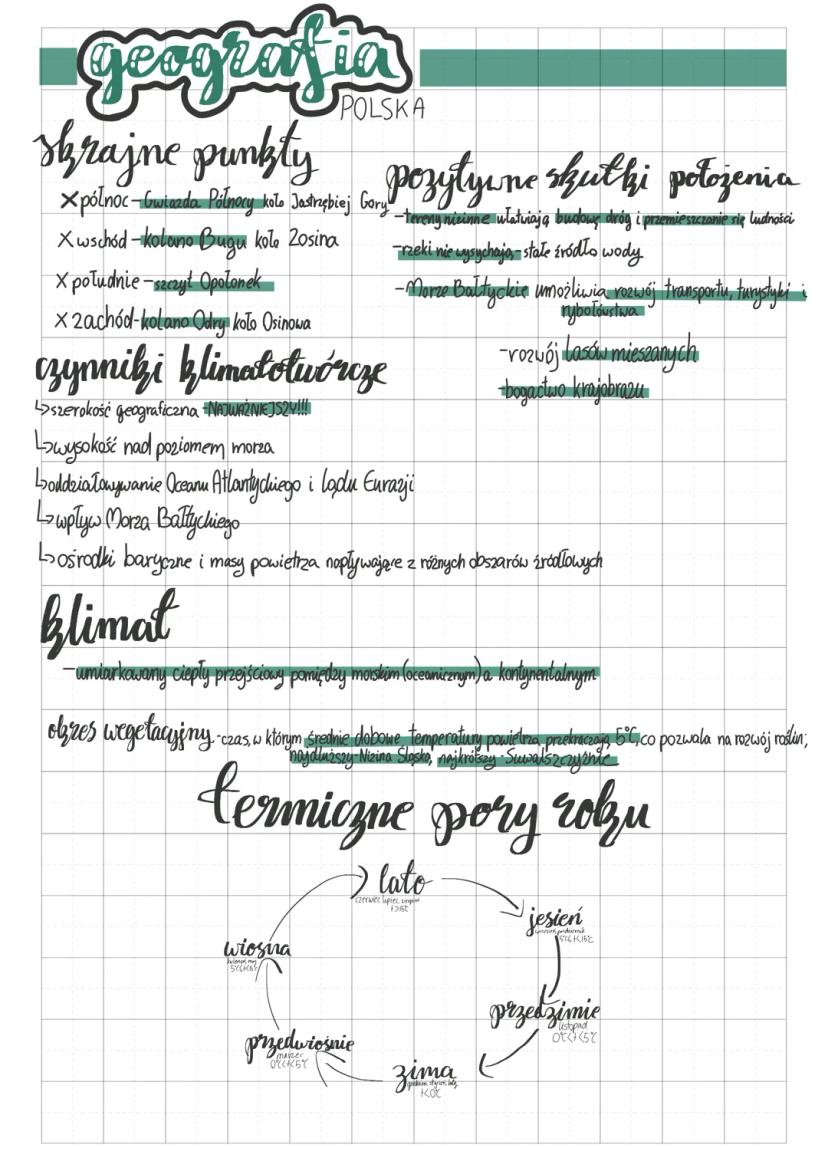 geografia
POLSKA
skrajne punkty
×północ-Gwiazda Północy koło Jastrzębiej Góry
×wschód-kolano Bugu koło Zosina
×południe-szczyt Opołonek
×zachód-kolano Odry koło Osinowa
pozytywne skutki położenia
-tereny nizinne ułatwiają budowę dróg i przemieszczanie się ludności
-rzeki nie wysychają-stałe źródło wody
-Morze Bałtyckie umożliwia rozwój transportu, turystyki i
rybołówstwa
-rozwój lasów mieszanych
-bogactwo krajobrazu
czynniki klimatotwórcze
↳szerokość geograficzna-NAJWAŻNIEJSZY!!!
↳wysokość nad poziomem morza
↳oddziaływanie Oceanu Atlantyckiego i lądu Eurazji
↳wpływ Morza Bałtyckiego
↳ośrodki baryczne i masy powietrza napływające z różnych obszarów źródłowych
klimat
-umiarkowany ciepły przejściowy pomiędzy morskim (oceanicznym) a kontynentalnym
okres wegetacyjny-czas, w którym średnie dobowe temperatury powietrza przekraczają 5°C, co pozwala na rozwój roślin;
najdłuższy-Nizina Śląska, najkrótszy-Suwalszczyźnie
termiczne pory roku
lato
czerwiec, lipiec, sierpień
t>15°C
jesień
5°C<t<15°C
wiosna
przedzimie
listopad
0°C<t<5°C
przedwiośnie
marzec
0°C<t<5°C
zima
grudzień, styczeń, luty
t<0°C